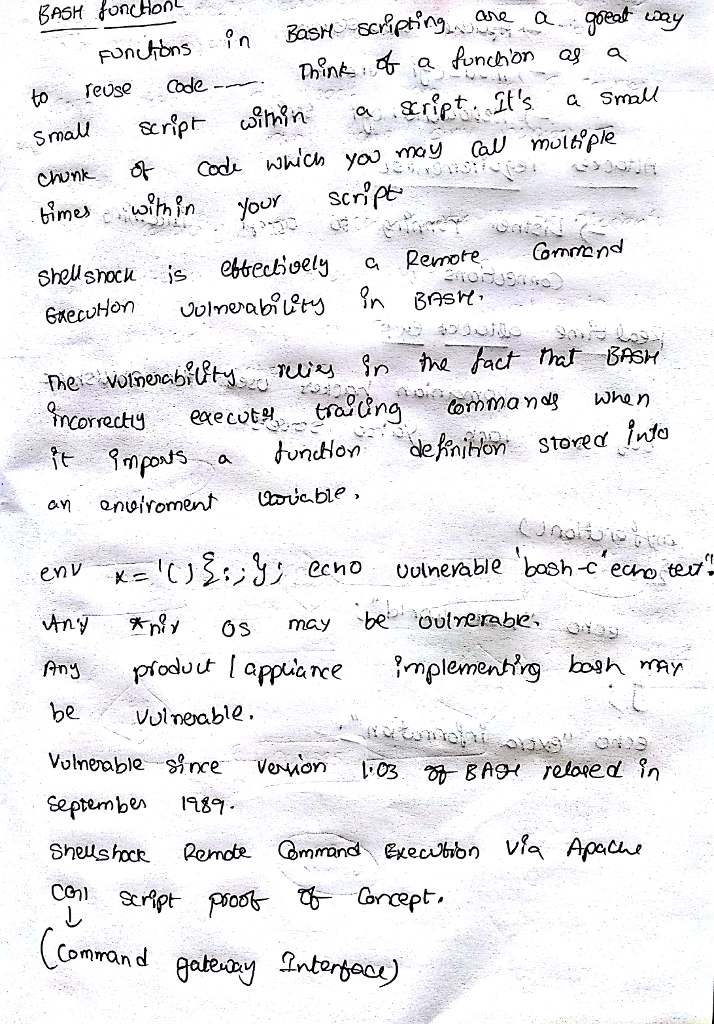 BASH function
Functions in BASH scripting are a great way
to reuse code ----. Think of a function as a
small script within a script. It's a small
chunk of code which you may call multiple
times within your script
Shellshock is effectively a Remote Command
Execution vulnerability in BASH.
The vulnerability relies in the fact that BASH
incorrectly executes trailing commands when
it imports a function definition stored into
an enviroment variable.
env x='(){:;}; echo vulnerable 'bash -c' echo test".
Any *nix OS may be vulnerable.
Any product / appliance implementing bash may
be vulnerable.
Vulnerable since version 1.03 of BASH relased in
September 1989.
Shellshock Remote Command Execution via Apache
CGI script proof of Concept.
(Command gateway Interface)